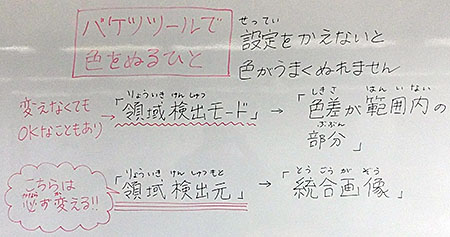 バケツツールで
色をぬるひと
せってい
設定をかえないと
色がうまくぬれません
変えなくても
OKなこともあり
りょういき けんしゅつ
「領域検出モード」
→
しきさ はんいない
「色差が範囲内の
ぶぶん
部分」
こちらは
必ず変える!!
りょういき けんしゅつもと
「領域検出元」
→
とうごうがぞう
「統合画像」